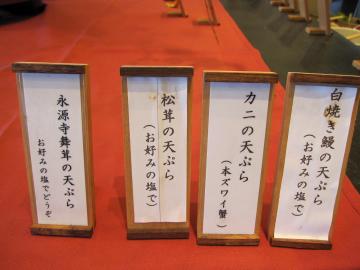 永源寺舞茸の天ぷら
お好みの塩でどうぞ
松茸の天ぷら
(お好みの塩で)
カニの天ぷら
(本ズワイ蟹)
白焼き鰻の天ぷら
(お好みの塩で)